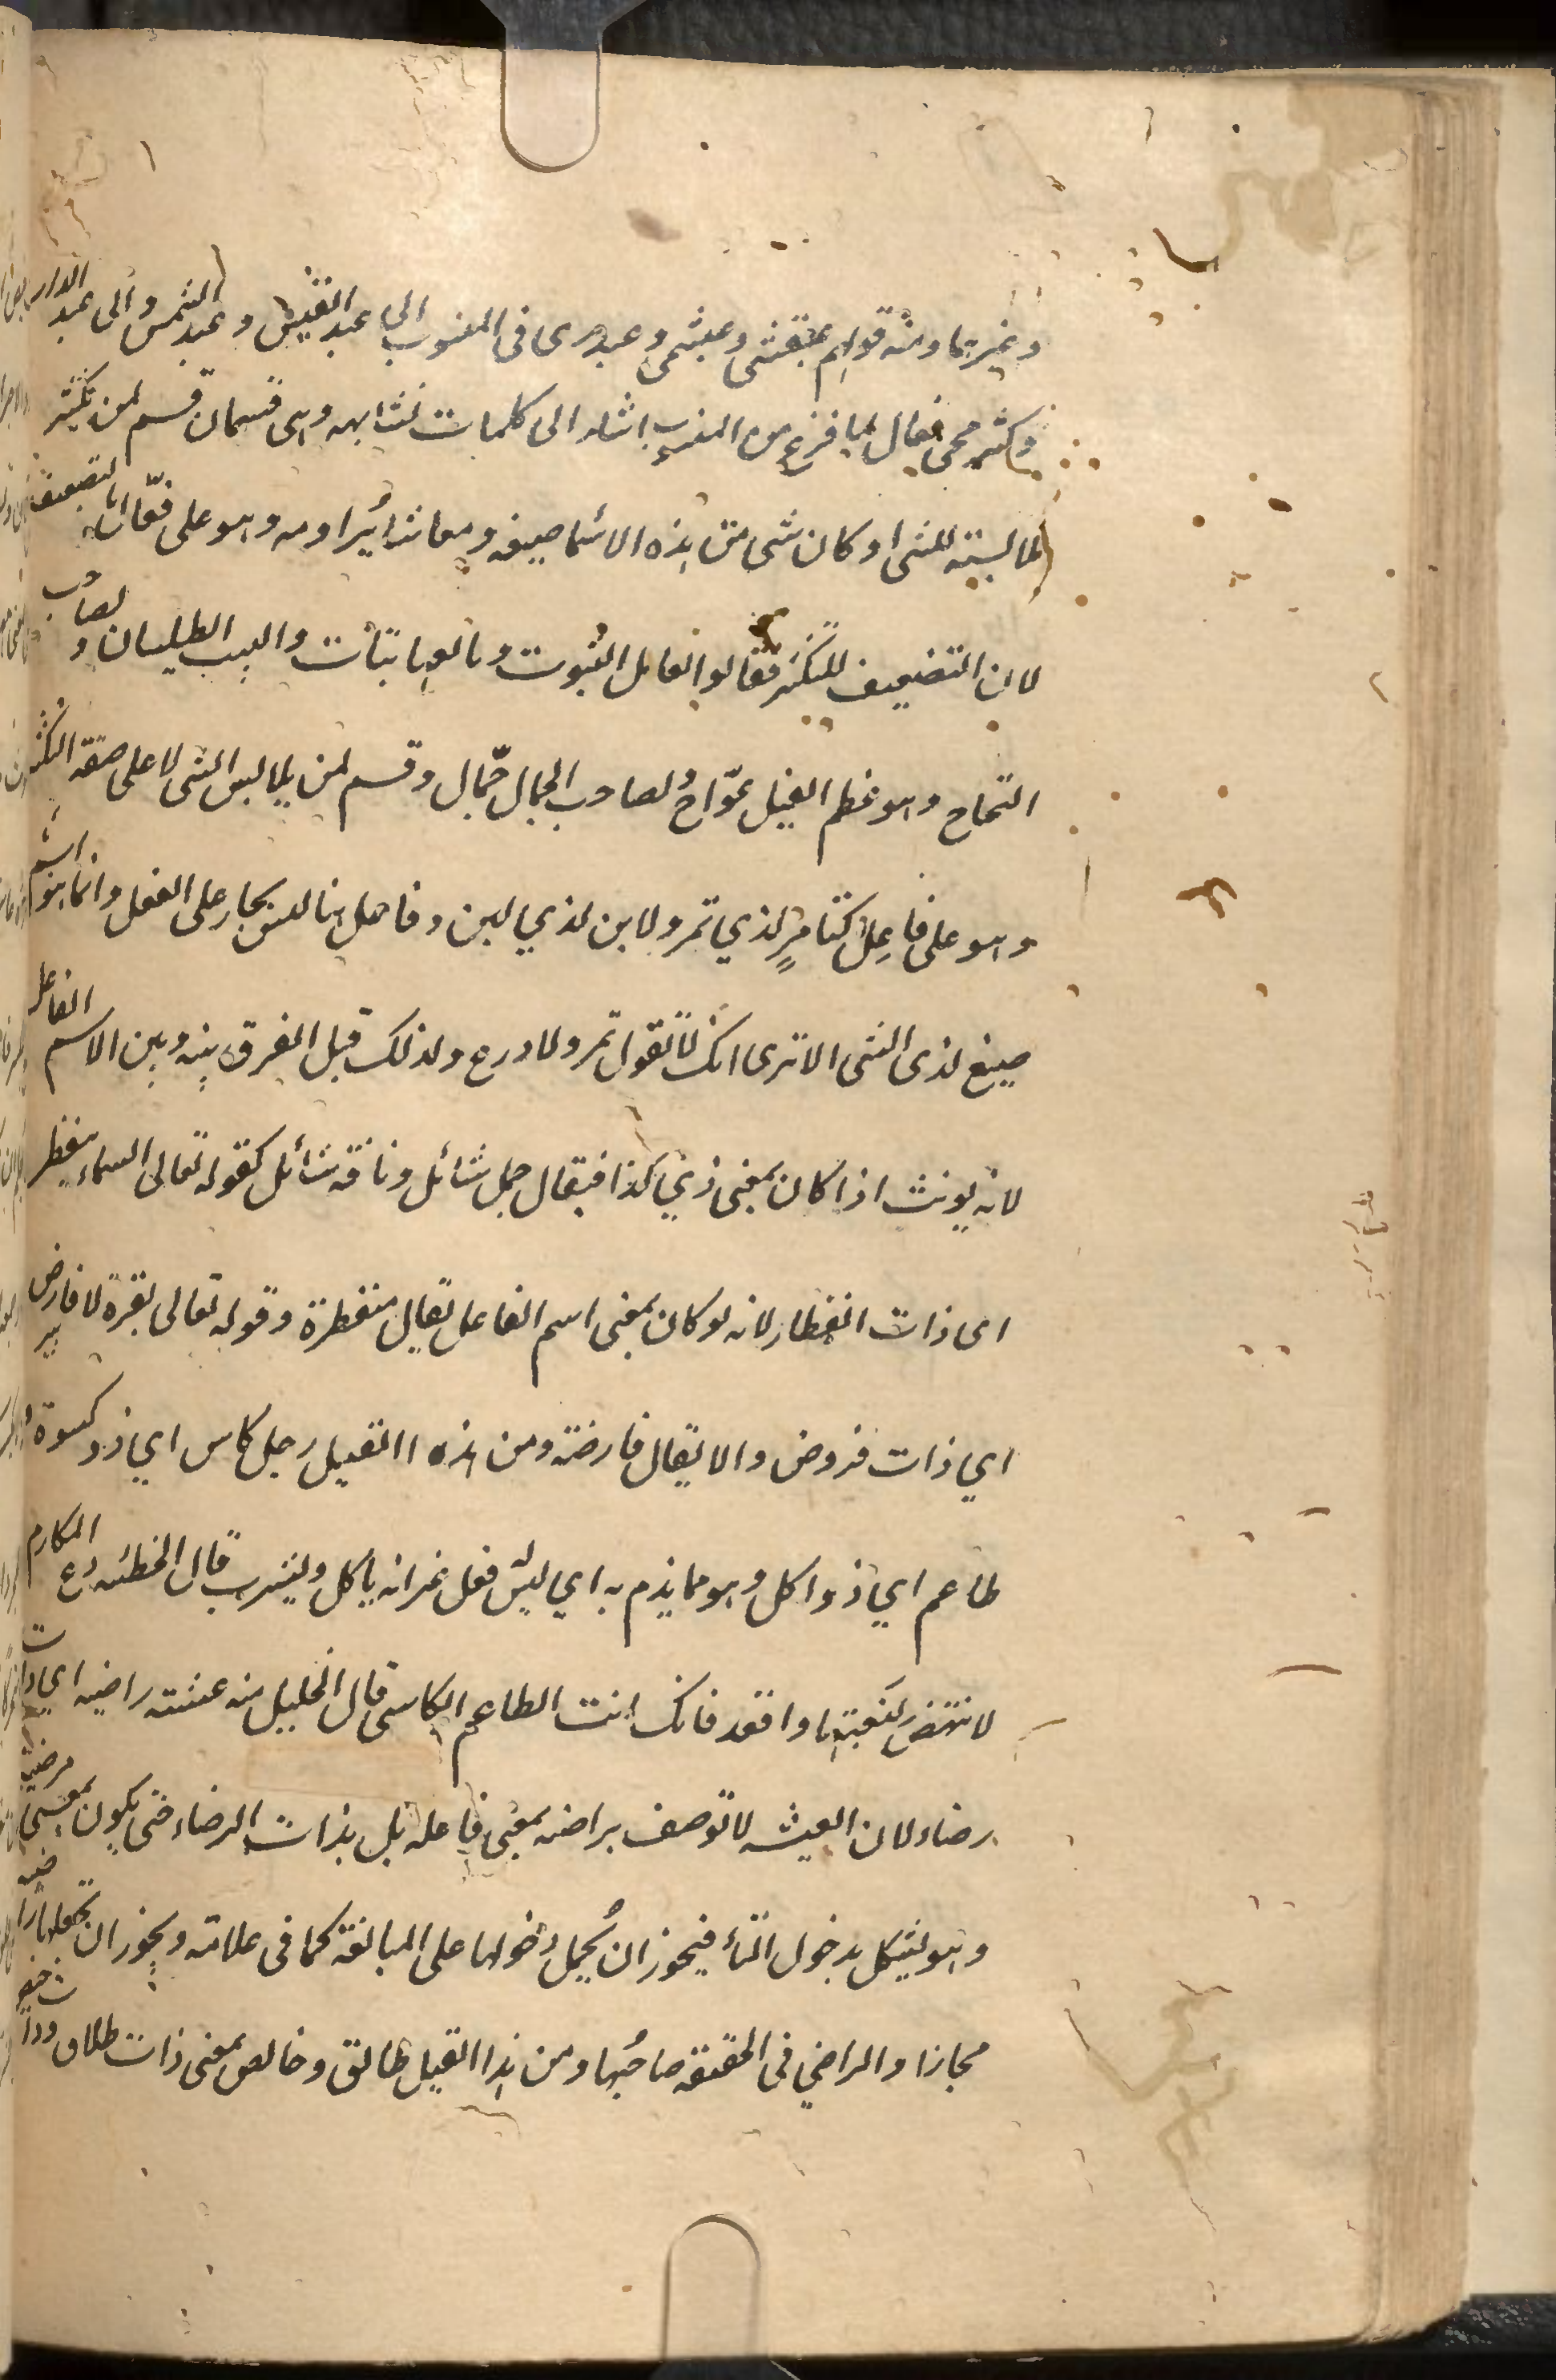 وغيرهما ومنه قولهم عبقسي وعبشمي وعبدرى فى المنسوب الى عبد القيس وعبد الشمس والى عبد الدار
وكثر مجى فعال لما فرغ من المنسوب اشار الى كلمات تشابهه وهى قسمان قسم لمن تكثير
ملابسته للشى او كان شى من هذه الاشيا صيغه ومعاشا يزاومه وهو على فعّال بالتضعيف
لان التضعيف للتكثير فقالوا لعامل البتوت وبائعها بتات والبت الطيلسان ولصاحب
التعاج وهو عظم الفيل عوّاج ولصاحب الجمال جمّال وقسم لمن يلابس الشى لا على صفة التكثير
وهو على فاعِل كتامرٍ لذي تمر ولابن لذي لبن وفاعل هنا ليس بجار على الفعل وانما هو اسم
صيغ لذى الشى الا ترى انك لا تقول تمر ولا درع ولذلك قيل الفرق بينه وبين الاسم الفاعل
لانه يونث اذا كان بمعنى ذي كذا فيقال جمل شائل وناقة شائل كقوله تعالى السماء منفطر
اى ذات انفطار لانه لو كان بمعنى اسم الفاعل لقال منفطرة وقوله تعالى بقرة لا فارض
اي ذات فروض والا يقال فارضة ومن هذه االقبيل رجل كاس اي ذو كسوة
طاعم اي ذو اكل وهو مما يذم به اي ليس له فعل غير انه ياكل ويشرب قال الحطئيه دع المكارم
لا تنهض لبغيتها واقعد فانك انت الطاعم الكاسى قال الخليل منه عيشته راضيه اي ذات
رضاء لان العيشه لا توصف براضيه بمعنى فاعله بل بذات الرضاء حتى يكون بمعنى مرضيه
وهو يشكل بدخول التاء فيجوز ان يُحمل دخولها على المبالغة كما فى علامة ويجوز ان تجعلها راضيه
مجازا والراضي فى الحقيقة صاحبُها ومن هذا القبيل طالق وخالص بمعنى ذات طلاق وذات